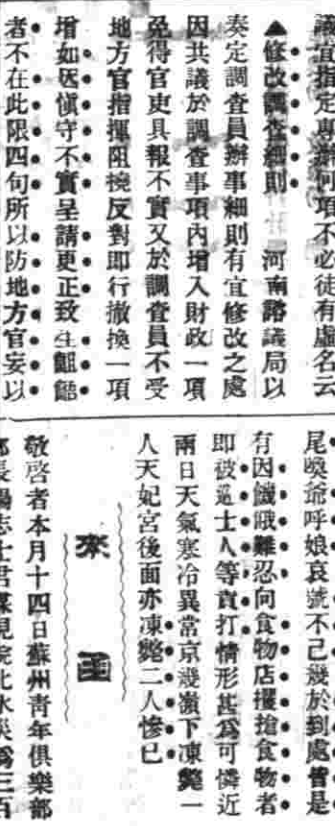 議宜指定專辦何項不必徒有虛名云
▲修改調查細則 河南諮議局以
奏定調查員辦事細則有宜修改之處
因共議於調查事項內增入財政一項
免得官吏具報不實又於調查員不受
地方官指揮阻撓反對即行撤換一項
增如因愼守不實呈請更正致生齟齬
者不在此限四句所以防地方官妄以
尾喚爺呼娘哀號不已幾於到處皆是
有因饑餓難忍向食物店攫搶食物者
即被逼士人等責打情形甚爲可憐近
兩日天氣寒冷異常京畿嶺下凍斃一
人天妃宮後面亦凍斃二人慘已
來函
敬啓者本月十四日蘇州青年俱樂部
部長楊志士君謀見皖北水災爲三百